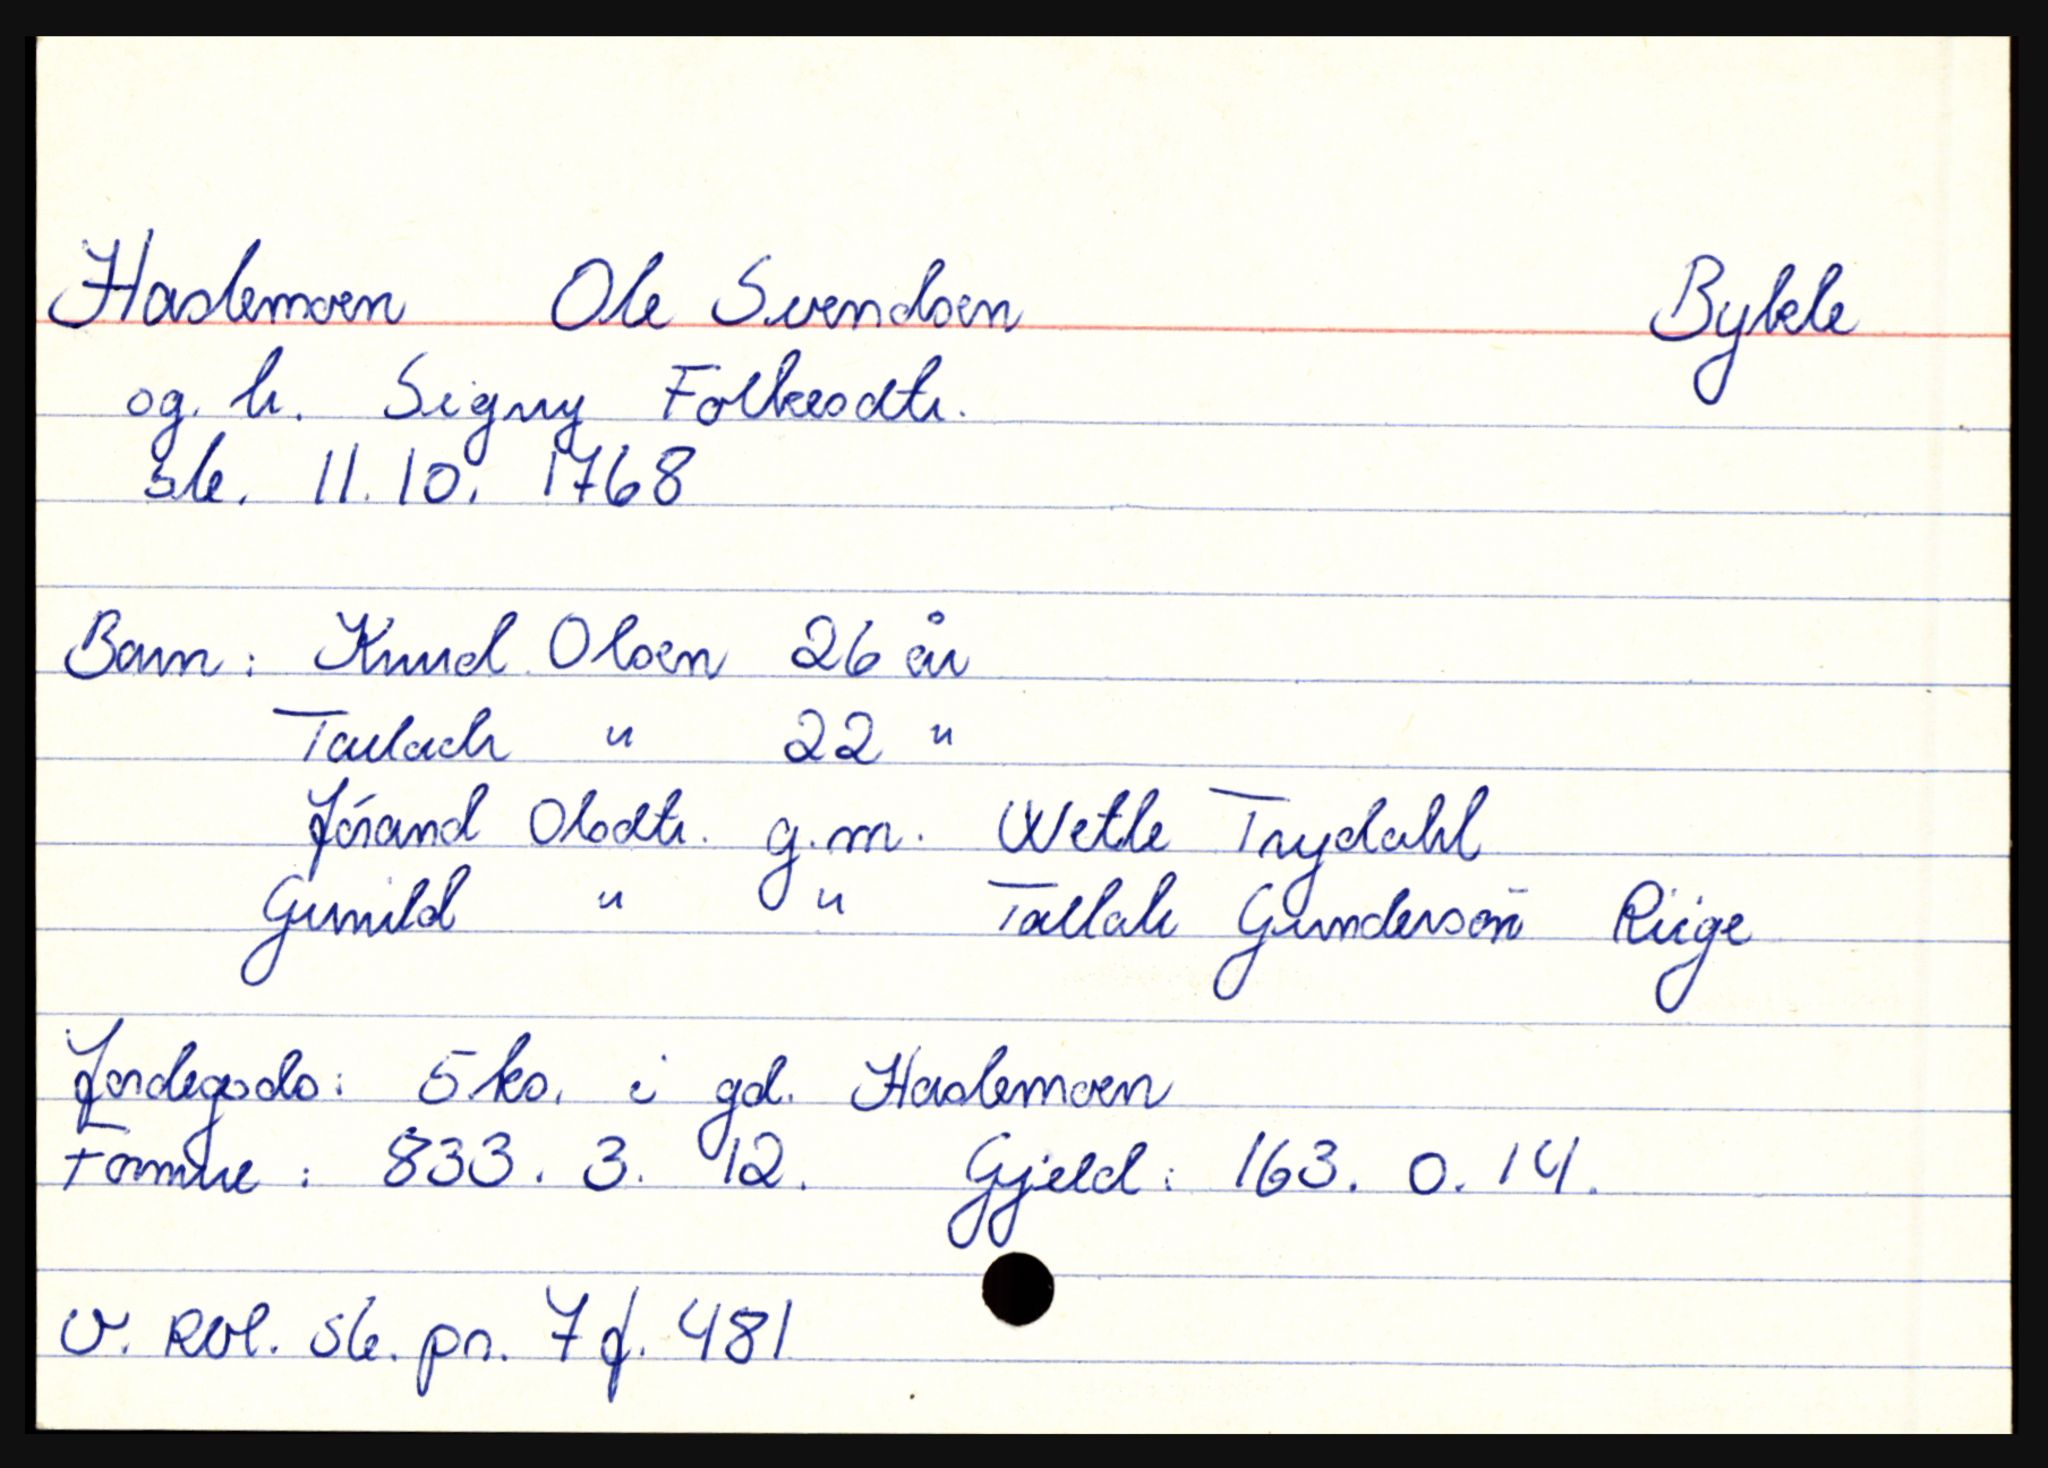 Haslemoen Ole Svendsen Bykle
og. h. Signy Folkesdtr.
sk. 11.10. 1768
Barn: Knud Olsen 26 år
Tallach " 22 "
Jórand Olsdtr. g.m. Wetle Trydahl
Gunild " " Tallak Gunderson Riige
Jordegods: 5 ks. i gd. Haslemoen
Formue: 833. 3. 12. Gjeld: 163. 0. 14.
V. Rbl. sk. pr. 7 f. 481